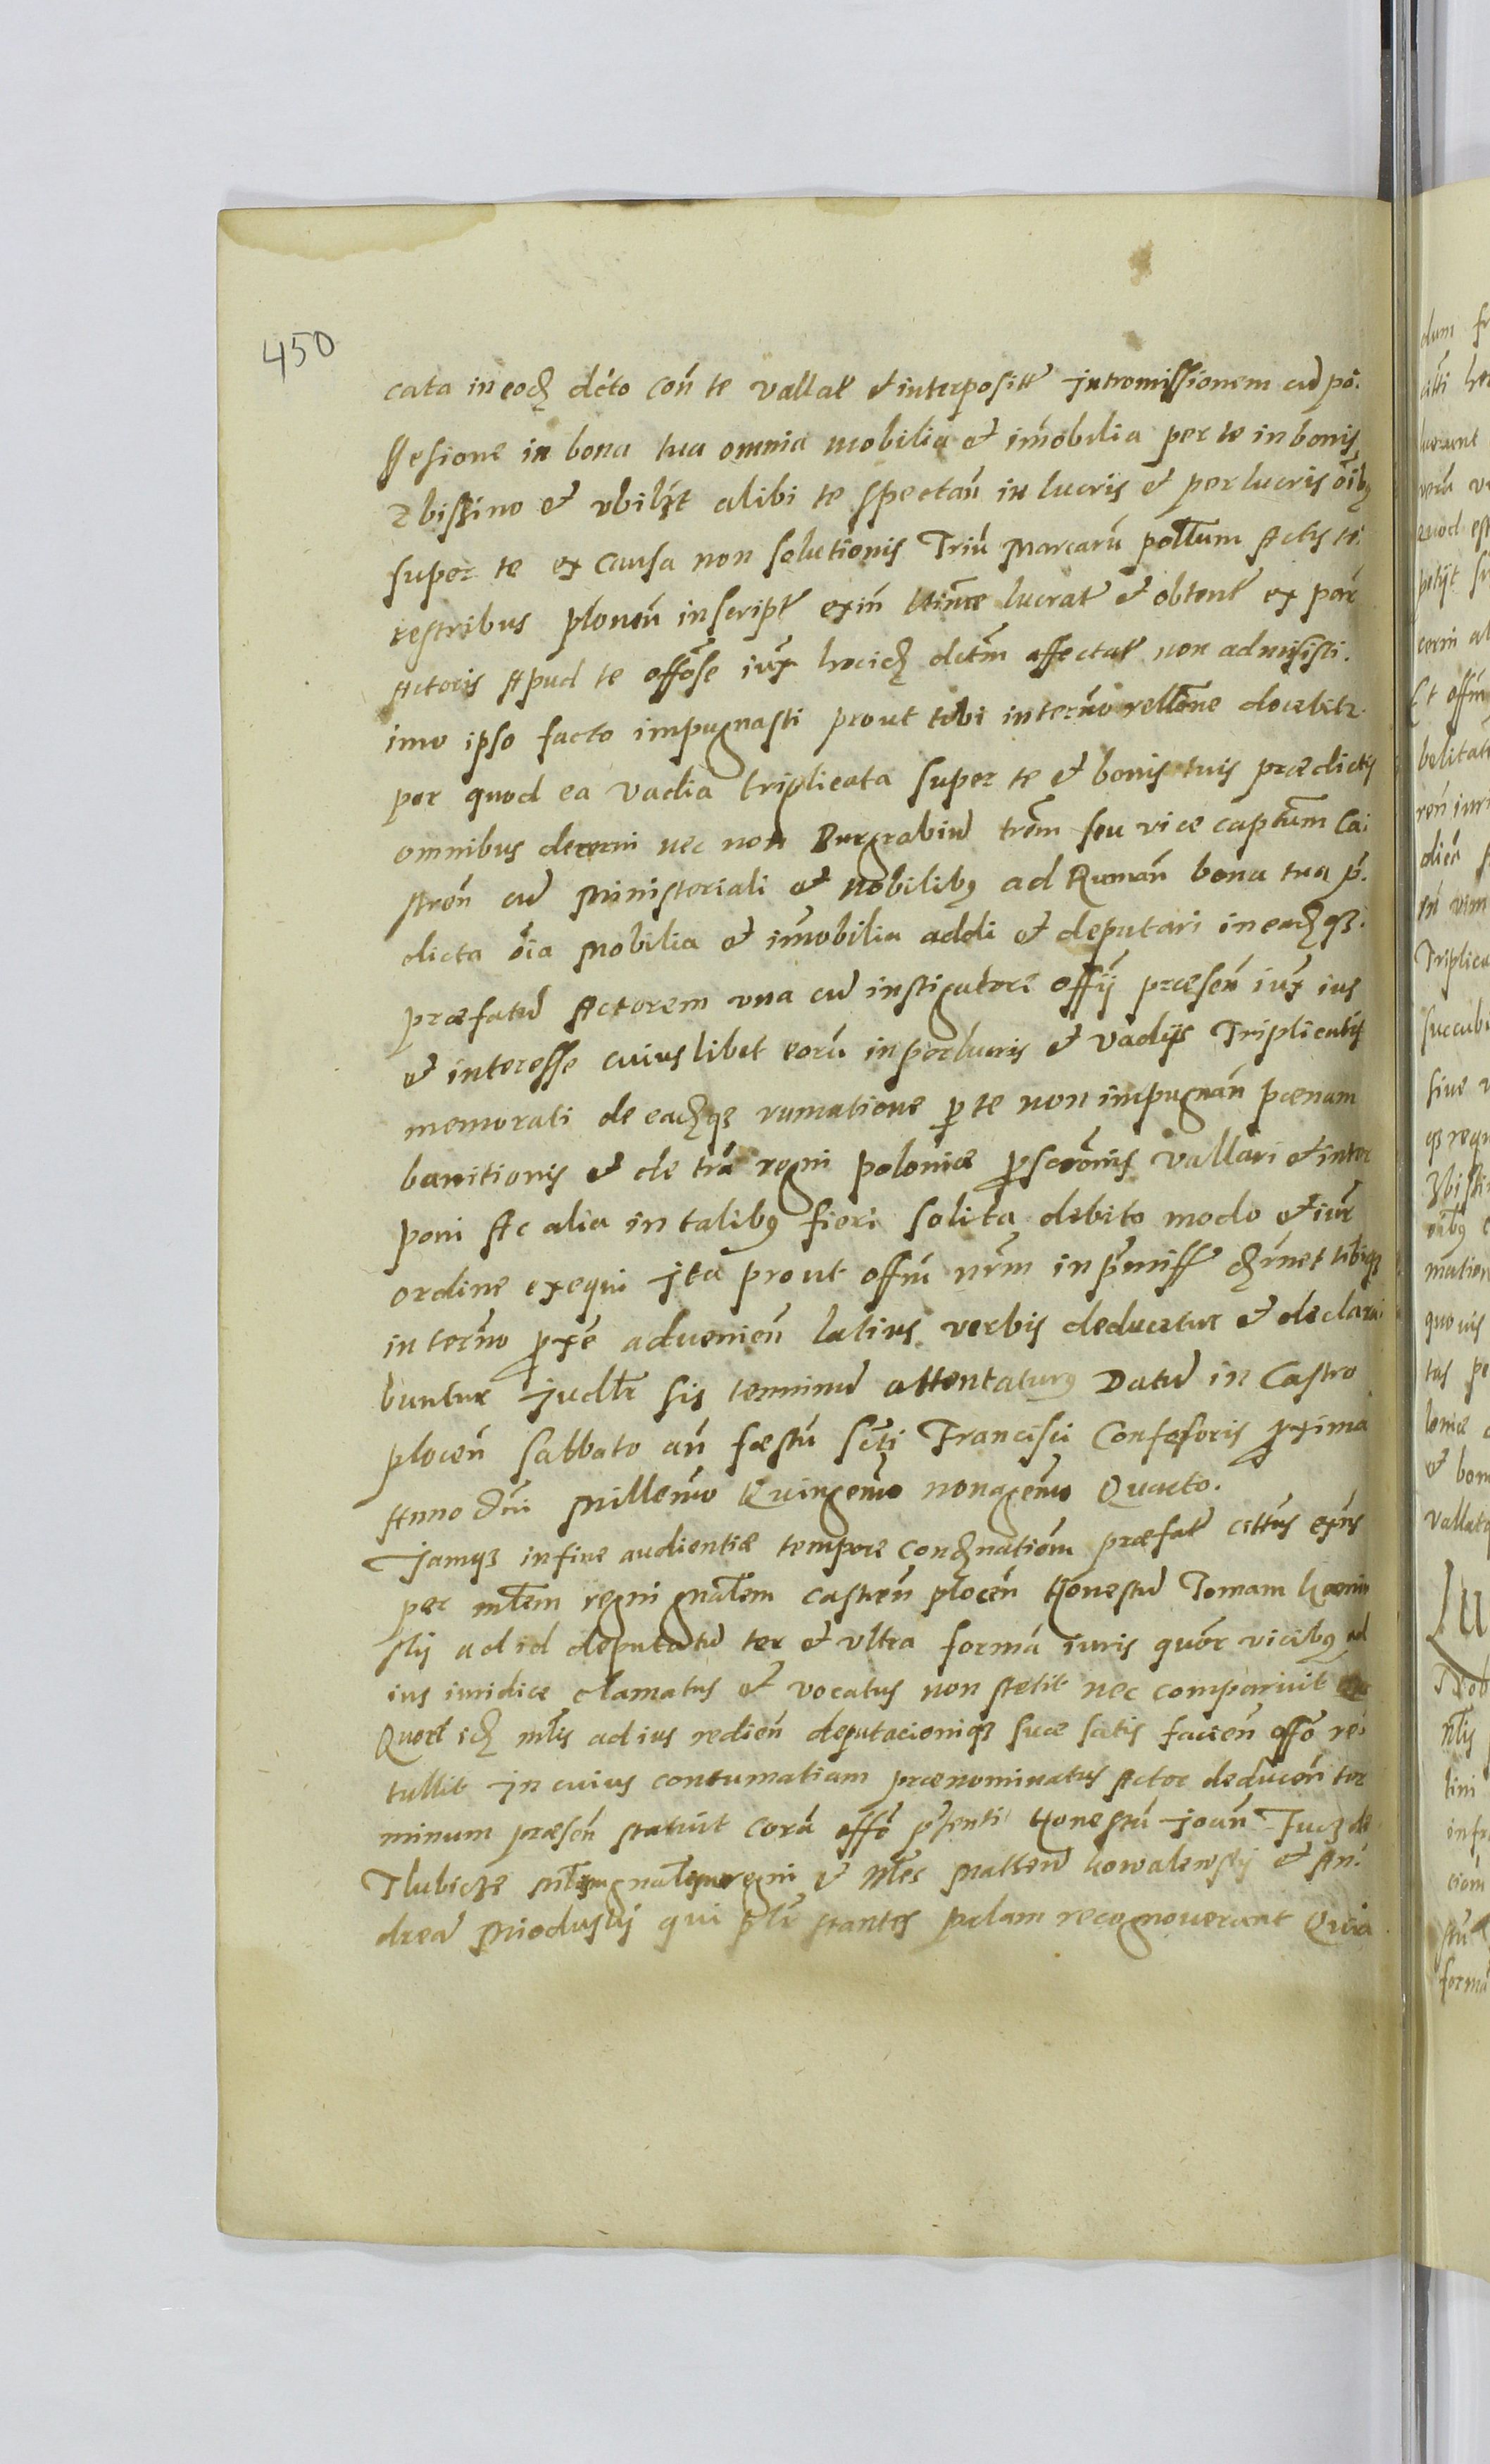 450
cata in eodꝫ dcto coñ te vallat et interposit Intromissionem cū po:
ssesione in bona tua omnia mobilia et imobilia per te in bonis
Zbissino et vbilꝫt alibi te spectañ in lucris et perlucris oibꝫ
super te ex causa non solutionis Triū Marcarū polłum Actis ter
restribus plocen̄ inscript exiń ltime lucrat et obtent ex part
Actoris Apud te offose iux hocidꝫ dctm affectat non admisisti.
imo ipso facto impugnasti prout tibi in termno rellone docebitr
per quod ea vadia triplicata super te et bonis tuis prædictis
omnibus decerni nec non Burgrabiū trem seu vice captum Ca:
stren̄ cū Ministeriali et nobilibꝫ ad Ruman̄ bona tua p̄:
dicta oia Mobilia et imobilia addi et deputari in eadꝫqꝫ
præfatū Actorem vna cū instigatore offij præsen̄ iux ius
et interesse cuiuslibet eorū in perlucris et vadijs Triplicatis
memorati de eadꝫqꝫ rumatione p te non impugnan̄ pœnam
banitionis et de tra regni poloniæ pscronis vallari et inter
poni Ac alia in talibꝫ fieri solita debito modo et iur
ordine exequi Ita prout offm nrm in pmiss dꝫrnet tibiqꝫ
in termno pxe aduenien̄ latius verbis deducetur et declara
buntur Judłr sis terminū attentaturꝫ Datū in Castro
plocen̄ Sabbato an̄ fæstū scti Francisci Confessoris pxima
Anno Dni Millemo Quingemo nonagemo Quarto.
Jamqꝫ in fine audientiæ tempore condꝫnationū præfat cittus exns
per młem regni gnałem castren̄ plocen̄ Honestū Tomam
skj ad id deputatū ter et vltra formā iuris quor vicibꝫ ad
ius iuridice clamatus et vocatus non stetit nec comparuit
Quort idꝫ młis ad ius redien̄ deputacioniqꝫ suæ satis facien̄ offo re:
tullit In cuius contumatiam prænominatus Actor deducen̄ ter
minum præsen̄ statuit corā offo psenti Honestū Joan̄ Tucz de
Tlubicze regni et Nłes Mattheū kowalewskj et An:
dreā Mioduskj qui płr stantes palam recognouerunt Quia